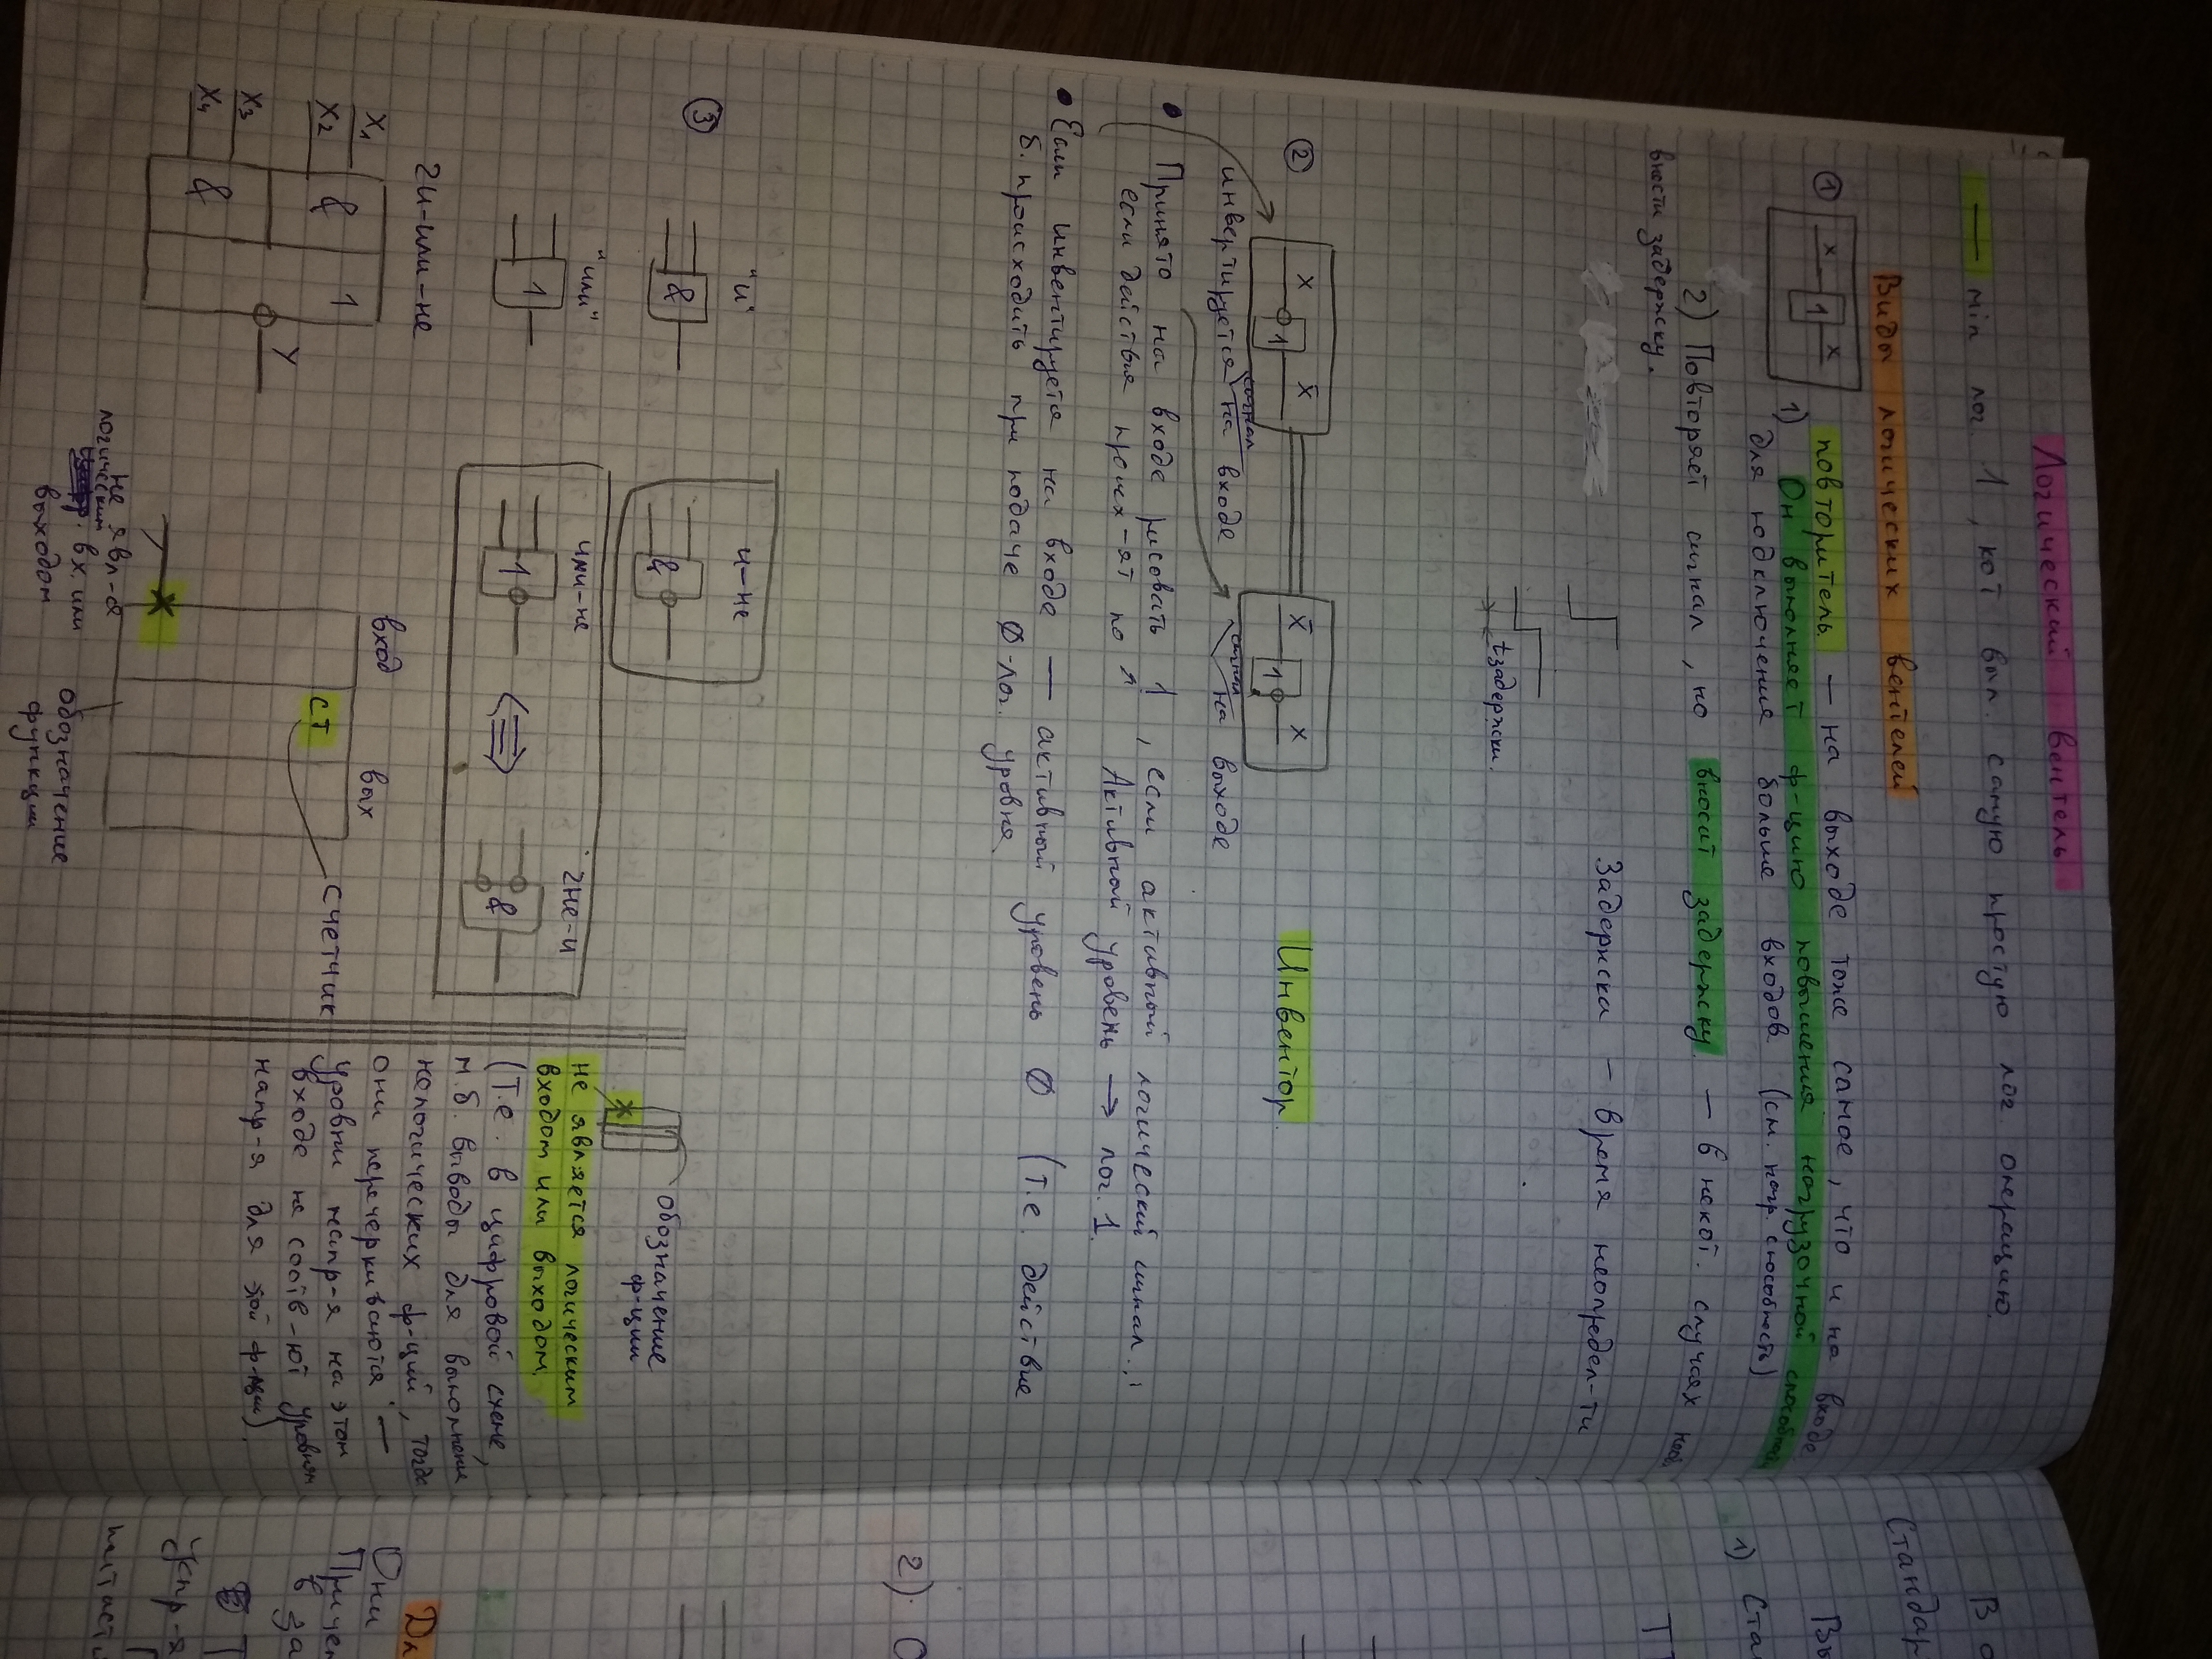 Логический вентель
— min лог. 1, кот вып. самую простую лог. операцию.
Виды логических вентелей
① x 1 x
1) повторитель — на выходе тоже самое, что и на входе.
Он выполняет ф-цию повышения нагрузочной способности
для подключения больше входов (см. нагр. способность)
2) Повторяет сигнал, но вносит задержку — в некот. случаях
внести задержку.
Задержки — время неопредел-ти
tзадержки.
② x 1 x̄
x̄ 1 x
Инвентор
инвертируется сигнал на входе
сигнал на выходе
• Принято на входе рисовать 1, если активный логический сигнал.
если действия проис х-ят по ↑. Активный уровень → лог. 1.
• Если инвентируется на входе — активный уровень 0 (т.е. действие
б. происходить при подаче 0-лог. уровня.
③ "и"
&
"или"
1
и-не
&
или-не
1
2не-и
&
2и-или-не
x1
x2
x3
x4
&
&
1
y
вход
вых
СТ
счетчик
не явл-я
логическим
вх. или
выходом
обозначение
функции
обозначение
ф-ции
не является логическим
входом или выходом,
(т.е. в цифровой схеме,
м.б. выводы для выполнения
нелогических ф-ций, тогда
они перечеркиваются —
уровни напр-я на этом
входе не соотв-ют уровням
напр-я для этой ф-ции).
В
Стандар
1) Ста
Т
2). О
Дл
Они
Причем
в за
Т